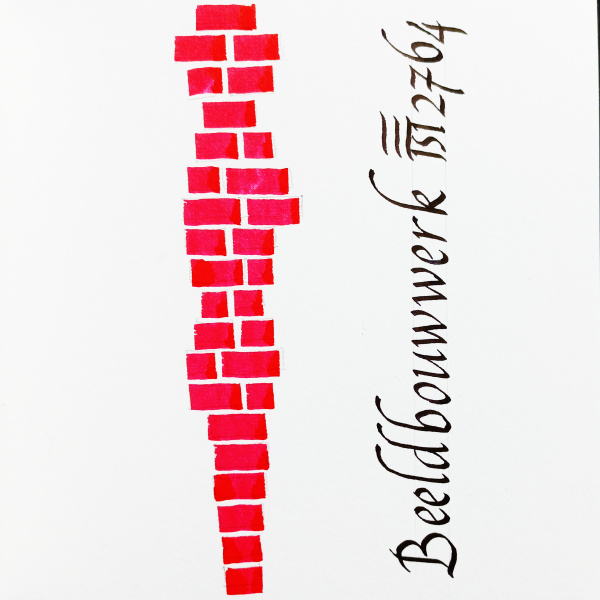 Beeldbouwwerk 2764